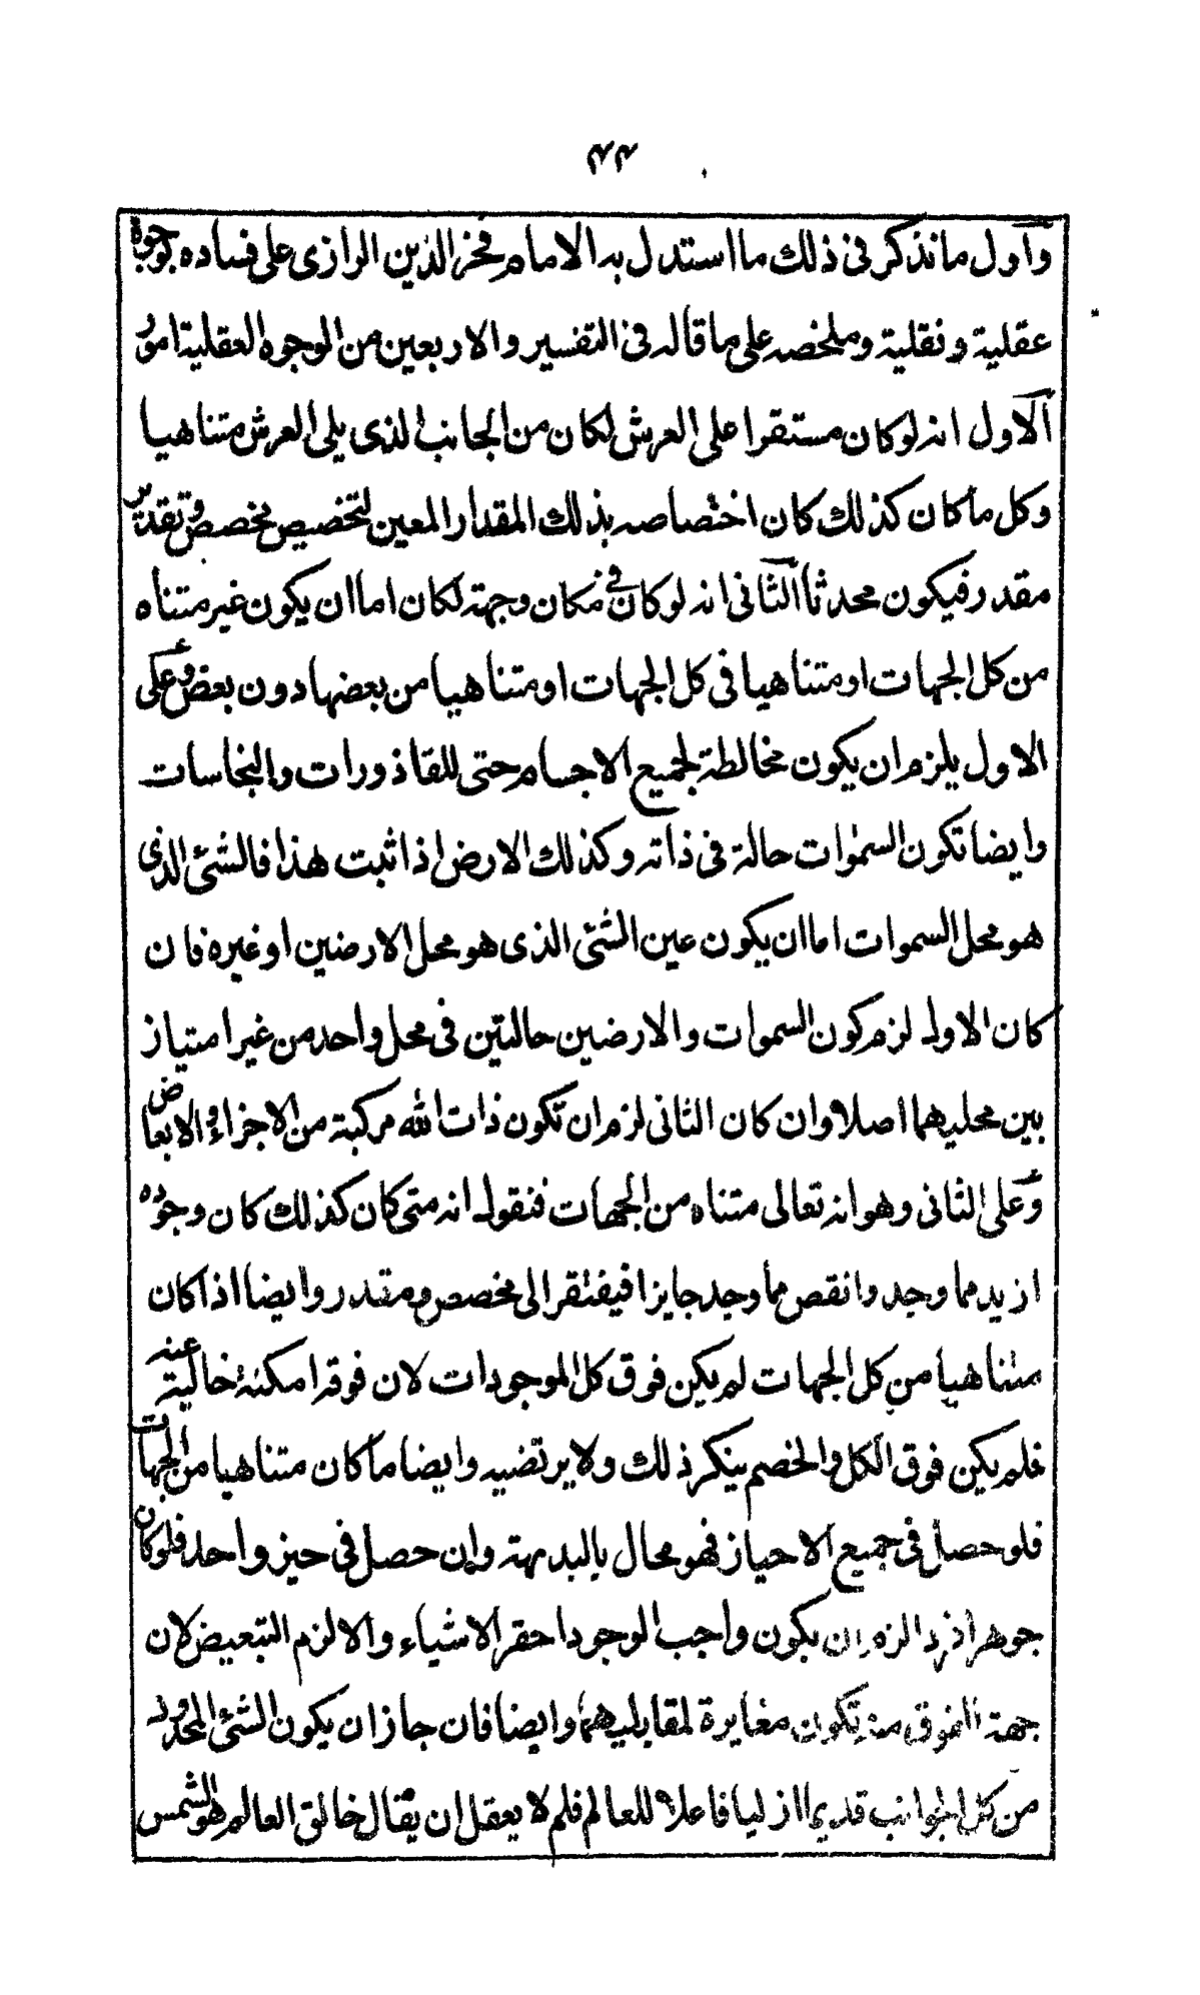 ۴۴
واول ما نذكر في ذلك ما استدل به الامام فخر الدين الرازى على فساده بوجوه
عقلية ونقلية وملخصه على ما قاله في التفسير والاربعين من الوجوه العقلية امور
الاول انه لو كان مستقرا على العرش لكان من الجانب الذى يلى العرش متناهيا
وكل ما كان كذلك كان اختصاصه بذلك المقدار المعين لتخصيص مخصص وتقدير
مقدر فيكون محدثا الثانى انه لو كان في مكان وجهة لكان اما ان يكون غير متناه
من كل الجهات او متناهيا في كل الجهات او متناهيا من بعضها دون بعض وعلى
الاول يلزم ان يكون مخالطة لجميع الاجسام حتى للقاذورات والنجاسات
وايضا تكون السموات حالة في ذاته وكذلك الارض اذا ثبت هذا فالشئ الذى
هو محل السموات اما ان يكون عين الشئ الذى هو محل الارضين او غيره فان
كان الاول لزم كون السموات والارضين حالتين في محل واحد من غير امتياز
بين محليهما اصلا وان كان الثانى لزم ان تكون ذات الله مركبة من الاجزاء والابعاض
وعلى الثانى وهو انه تعالى متناه من الجهات فنقول انه متى كان كذلك كان وجوده
ازيد مما وجد وانقص مما وجد جايزا فيفتقر الى مخصص ومقدر وايضا اذا كان
متناهيا من كل الجهات لم يكن فوق كل الموجودات لان فوقه امكنة خالية عنه
فلم يكن فوق الكل والخصم ينكر ذلك ولا يرتضيه وايضا ما كان متناهيا من الجهات
فلو حصل في جميع الاحياز فهو محال بالبديهة وان حصل في حيز واحد فلو كان
جوهرا فردا لزم ان يكون واجب الوجود احقر الاشياء والا لزم التبعيض لان
جهة الفوق منه تكون مغايرة لمقابليهما وايضا فان جاز ان يكون الشئ المحدود
من كل الجوانب قديما ازليا فاعلا للعالم فلم لا يعقل ان يقال خالق العالم هو الشمس